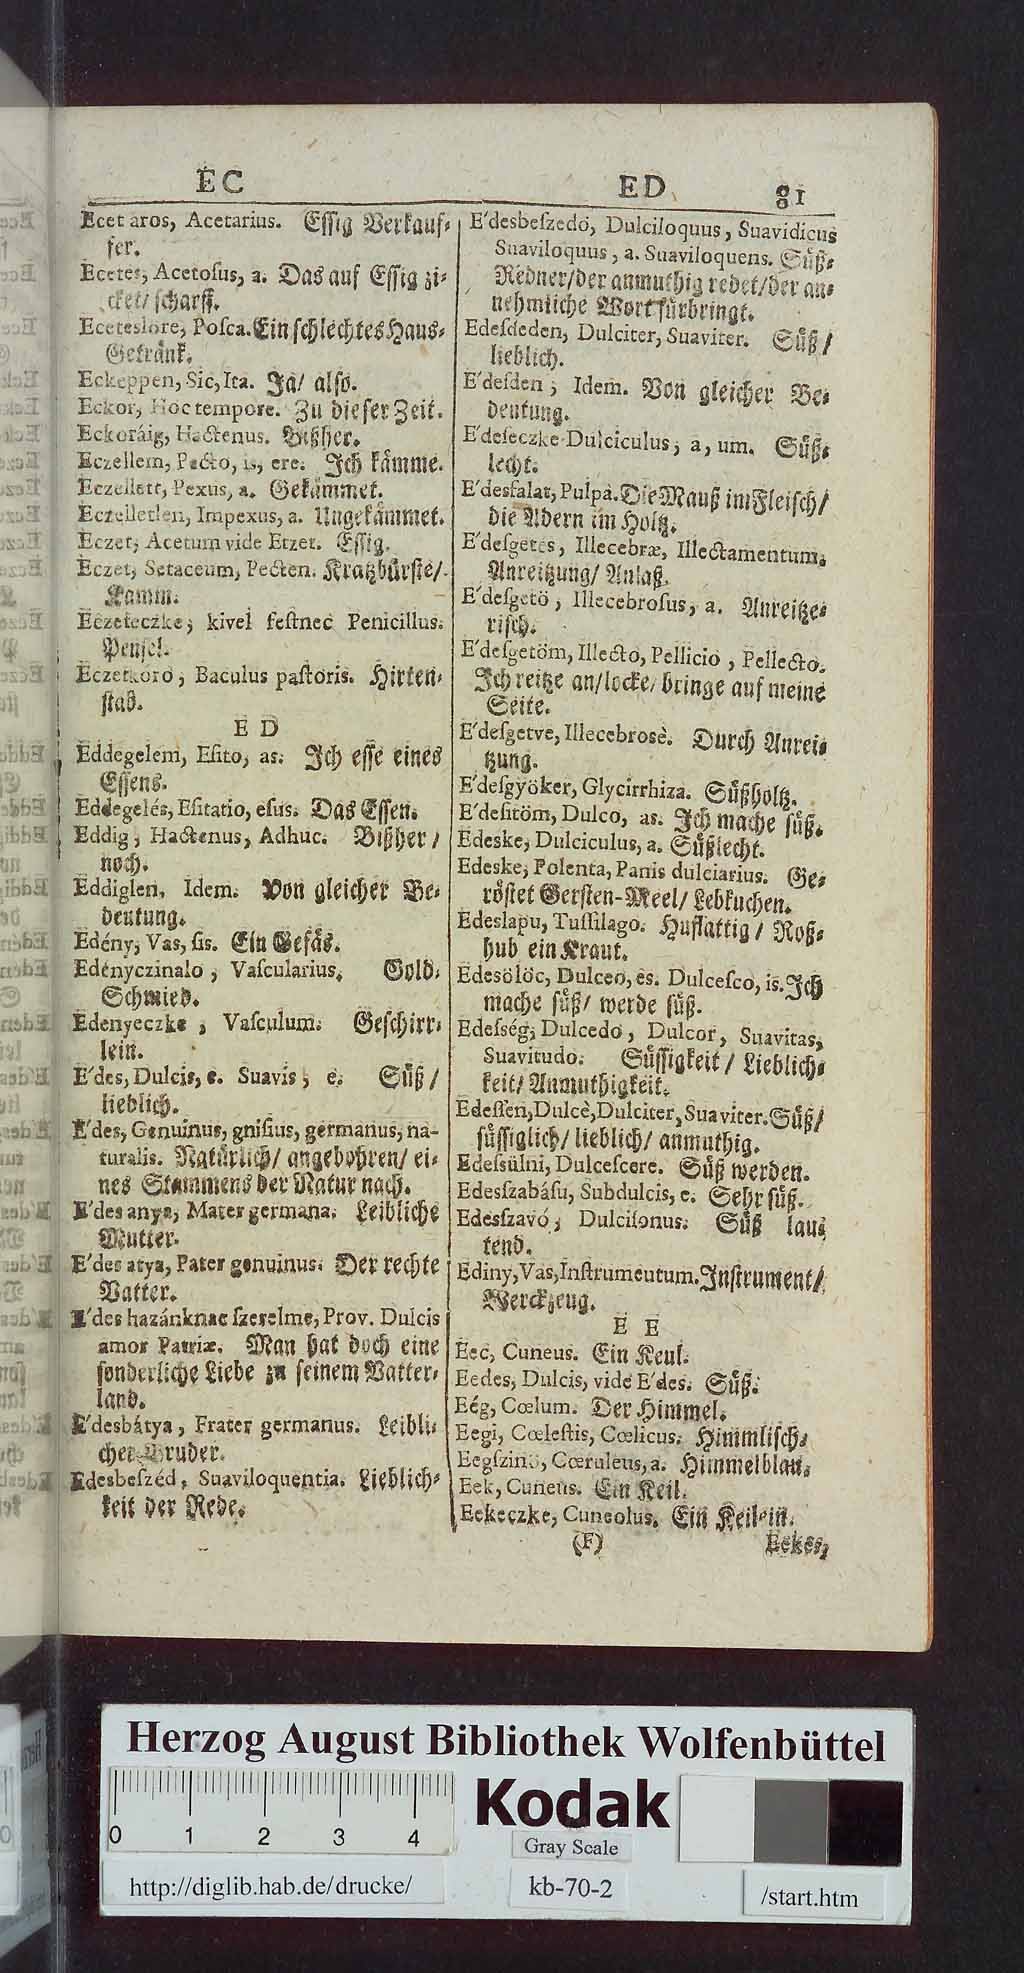 EC
ED
81
Ecet aros, Acetarius. Eſſig Verkauf-
fer.
Ecetes, Acetoſus, a. Das auf Eſſig zi-
cket/ ſcharff.
Eceteslore, Poſca. Ein ſchlechtes Haus-
Getränk.
Eckeppen, Sic, Ita. Ja/ alſo.
Eckor, Hoc tempore. Zu dieſer Zeit.
Eckoráig, Hactenus. Bißher.
Eczellem, Pecto, is, ere. Ich kämme.
Eczellett, Pexus, a. Gekämmet.
Eczelletlen, Impexus, a. Ungekämmet.
Eczet, Acetum vide Etzet. Eſſig.
Eczet, Setaceum, Pecten. Kratzbürſte/
Kamm.
Eczeteczke, kivel feſtnec Penicillus.
Penſel.
Eczetkoro, Baculus paſtoris. Hirten-
ſtab.
E D
Eddegelem, Eſito, as. Ich eſſe eines
Eſſens.
Eddegelés, Eſitatio, eſus. Das Eſſen.
Eddig, Hactenus, Adhuc. Bißher/
noch.
Eddiglen, Idem. Von gleicher Be-
deutung.
Edény, Vas, ſis. Ein Gefäs.
Edényczinalo, Vaſcularius. Gold-
Schmied.
Edenyeczke, Vaſculum. Geſchirr-
lein.
E'des, Dulcis, e. Suavis, e. Süß/
lieblich.
E'des, Genuinus, gniſius, germanus, na-
turalis. Natürlich/ angebohren/ ei-
nes Stammens der Natur nach.
E'des anya, Mater germana. Leibliche
Mutter.
E'des atya, Pater genuinus. Der rechte
Vatter.
E'des hazánknac ſzerelme, Prov. Dulcis
amor Patriæ. Man hat doch eine
ſonderliche Liebe zu ſeinem Vatter-
land.
E'desbátya, Frater germanus. Leibli-
cher Bruder.
Edesbeſzéd, Suaviloquentia. Lieblich-
keit der Rede.
E'desbeſzedó, Dulciloquus, Suavidicus
Suaviloquus, a. Suaviloquens. Süß-
Redner/ der anmuthig redet/ der an-
nehmliche Wort fürbringt.
Edesdeden, Dulciter, Suaviter. Süß/
lieblich.
E'deſden, Idem. Von gleicher Be-
deutung.
E'deſeczke Dulciculus, a, um. Süß-
lecht.
E'desfalat, Pulpa. Die Mauß im Fleiſch/
die Adern im Holtz.
E'deſgetés, Illecebræ, Illectamentum.
Anreitzung/ Anlaß.
E'deſgető, Illecebroſus, a. Anreitze-
riſch.
E'deſgetöm, Illecto, Pellicio, Pellecto.
Ich reitze an/ locke/ bringe auf meine
Seite.
E'deſgetve, Illecebrosè. Durch Anrei-
tzung.
E'deſgyöker, Glycirrhiza. Süßholtz.
E'deſitöm, Dulco, as. Ich mache ſüß.
Edeske, Dulciculus, a. Süßlecht.
Edeske, Polenta, Panis dulciarius. Ge-
röſtet Gerſten-Meel/ Lebkuchen.
Edeslapu, Tuſſilago. Huflattig/ Roß-
hub ein Kraut.
Edesölöc, Dulceo, es. Dulceſco, is. Ich
mache ſüß/ werde ſüß.
Edeſség, Dulcedo, Dulcor, Suavitas,
Suavitudo. Süſſigkeit/ Lieblich-
keit/ Anmuthigkeit.
Edeſſen, Dulcè, Dulciter, Suaviter. Süß/
ſüſſiglich/ lieblich/ anmuthig.
Edeſsülni, Dulceſcere. Süß werden.
Edesſzabáſu, Subdulcis, e. Sehr ſüß.
Edesſzavó, Dulciſonus. Süß lau-
tend.
Ediny, Vas, Inſtrumentum. Inſtrument/
Werckzeug.
E E
Eec, Cuneus. Ein Keul.
Eedes, Dulcis, vide E'des. Süß.
Eég, Cœlum. Der Himmel.
Eegi, Cœleſtis, Cœlicus. Himmliſch.
Eegſzinó, Cœruleus, a. Himmelblau.
Eek, Cuneus. Ein Keil.
Eekeczke, Cuneolus. Ein Keilein.
(F)
Eekes,
Herzog August Bibliothek Wolfenbüttel
0 1 2 3 4
Kodak
Gray Scale
http://diglib.hab.de/drucke/
kb-70-2
/start.htm